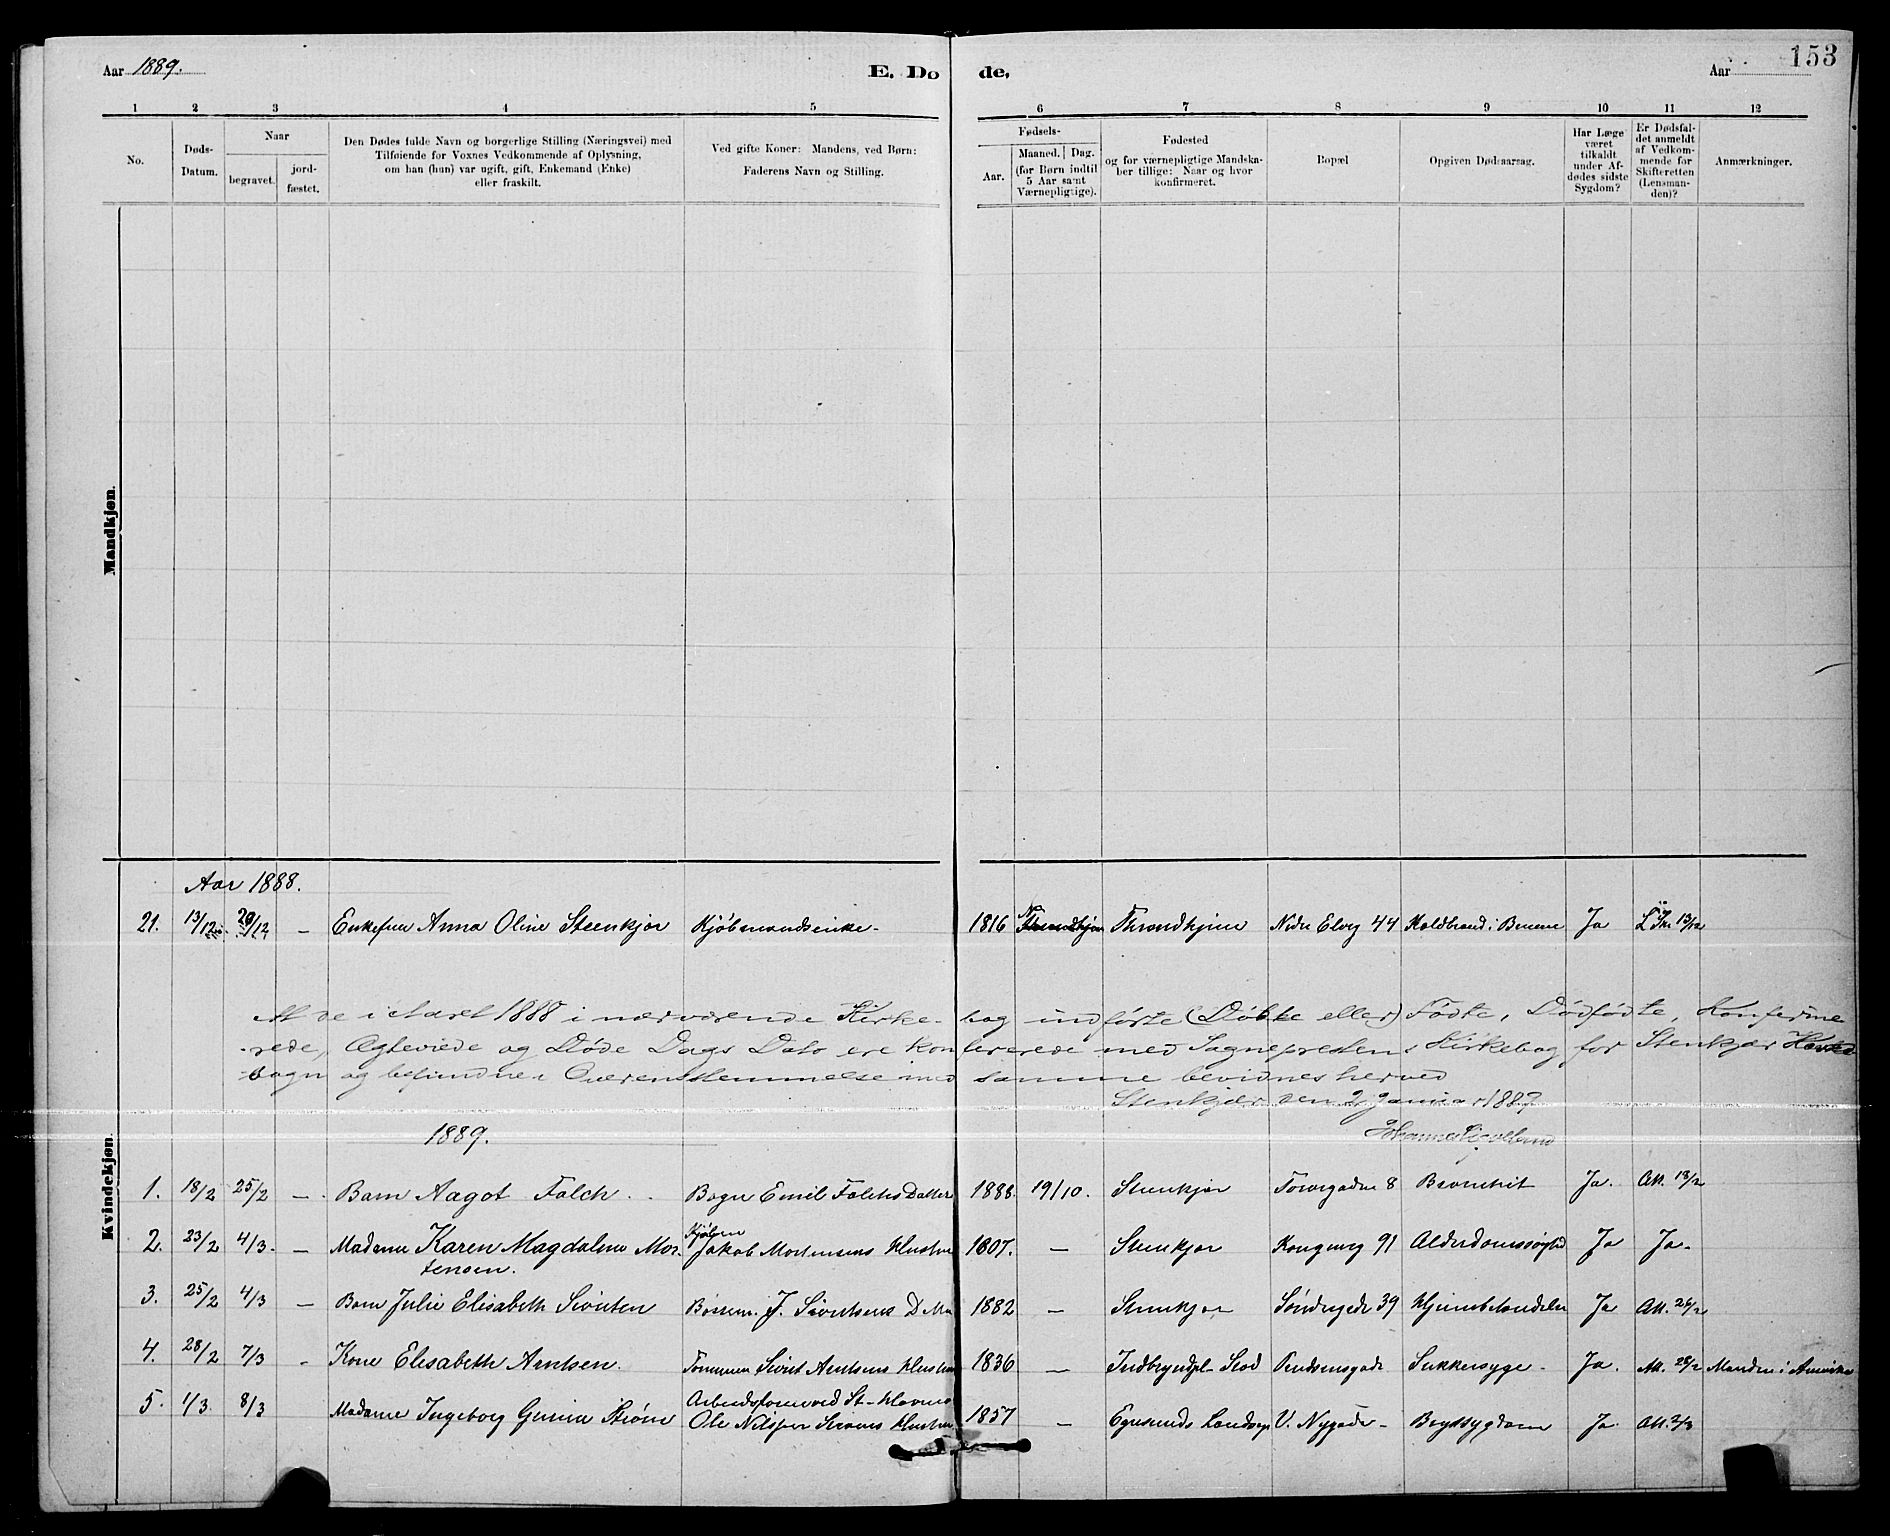 Aar 1889.
E. Døde,
Aar
153
1 2 3 4 5 6 7 8 9 10 11 12
No.
Døds-
Datum.
Naar
begravet.
jord-
fæstet.
Den Dødes fulde Navn og borgerlige Stilling (Næringsvei) med
Tilføiende for Voxnes Vedkommende af Oplysning,
om han (hun) var ugift, gift, Enkemand (Enke)
eller fraskilt.
Ved gifte Koner: Mandens, ved Børn:
Faderens Navn og Stilling.
Fødsels-
Aar.
Maaned. Dag.
(for Børn indtil
5 Aar samt
Værnepligtige).
Fødested
og for værnepligtige Mandska-
ber tillige: Naar og hvor
konfirmeret.
Bopæl
Opgiven Dødsaarsag.
Har Læge
været
tilkaldt
under Af-
dødes sidste
Sygdom?
Er Dødsfal-
det anmeldt
af Vedkom-
mende for
Skifteretten
(Lensman-
den)?
Anmærkninger.
Mandkjøn.
Kvindekjøn.
Aar 1888.
21. 13/12 20/12 – Enkefru Anna Oline Steenkjær Kjøbmandsenke. 1816 Throndhjem Nedre Elveg 44 Koldbrand i Benene Ja 13/12
At de i Aaret 1888 i nærværende Kirkebog indførte (Døbte eller) Fødte, Dødfødte, Konfirme-
rede, Ægteviede og Døde Dags Dato ere konfererede med Sognepræstens Kirkebog for Stenkjær
sogn og befundne i Overensstemmelse med samme bevidnes herved
Stenkjær den 2 Januar 1889
1889.
1. 18/2 25/2 – Barn Aagot Falch Bager Emil Falchs Datter 1888. 19/10. Steenkjær Torvegaden 8 Bronchit Ja. Att. 19/2
2. 23/2 4/3. – Madame Karen Magdalena Mor-
tensen. Jakob Mortensens Hustru 1807. – Steenkjær Kongeveg 91 Alderdomssvaghed Ja Ja.
3. 25/2 4/3 – Barn Julie Elisabeth Sivertsen J. Sivertsens D. 1882 – Steenkjær Søndregade 39 Hjernebetændelse Ja Att. 26/2
4. 28/2 7/3 – Kone Elisabeth Arntsen. Tømmerm Sivert Arntsens Hustru 1836 – Stod Sukkersyge – Ja. Att. 28/2 Manden i Amerika
5. 1/3. 8/3 Madame Ingeborg Strøm Arbeidsformand ved St. Havne
Ole Hustru. 1857 – Egersunds Landsogn V. Nygade – Brystsygdom Ja. Att. 2/3